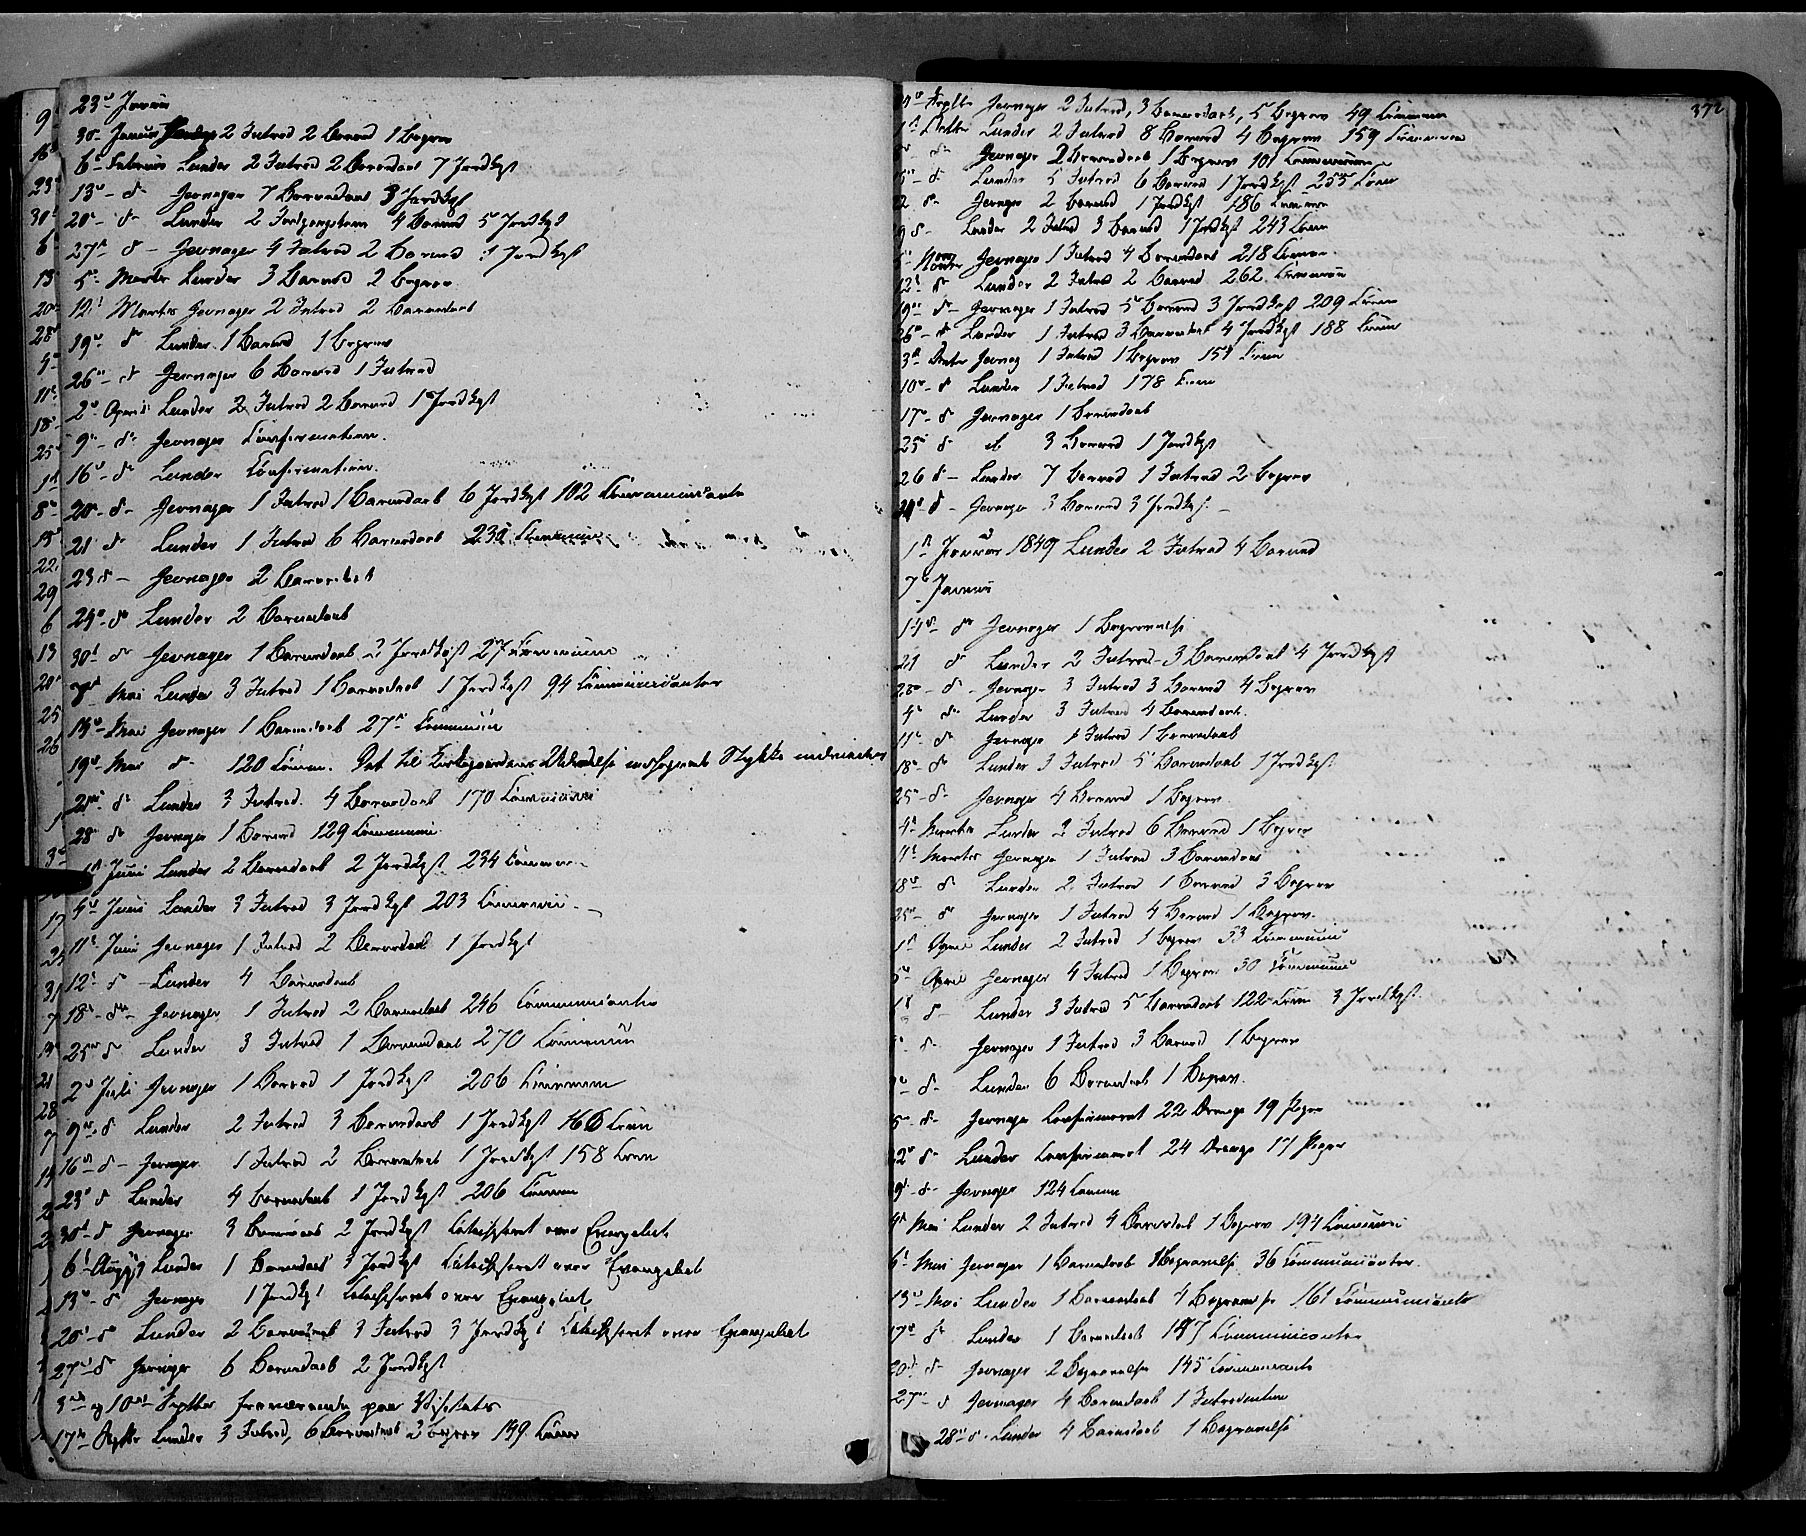 23de Januar
30te Januar 2 Introd 2 Barned 1 Begrav
6te Februar Lunder 2 Introd 2 Barnedaab 7 Jordkst
13de do Jevnager 7 Barnedaab 3 Jordkst
20de do Lunder 2 4 Barned 5 Jordkst
27de do Jevnager 4 Introd 2 Barned 1 Jordkst
5te Marts Lunder 3 Barned 2 Begrav
12te Marts Jevnager 2 Introd 2 Barnedaab
19de do Lunder 1 Barned 1 Begrav
26de do Jevnager 6 Barned 1 Introd
2den April Lunder 2 Introd 2 Barned 1 Jordkst
9de do Jevnager Confirmation.
16de do Lunder Confirmation.
20de do Jevnager 1 Introd 1 Barnedaab 6 Jordkst 102 Communicanter
21 do Lunder 1 Introd 6 Barnedaab 235 Commun
23 do Jevnager 2 Barnedaab
24de do Lunder 2 Barnedaab
30te do Jevnager 1 Barnedaab 2 Jordkst 27 Commun
7de Mai Lunder 3 Introd 1 Barnedaab 1 Jordkst 94 Communicanter
14de Mai Jevnager 1 Barnedaab 27 Commun
19de Mai do 120 Commun. Det til Kirkegaardens Udvidelse Stykke indviedes
21de do Lunder 3 Introd. 4 Barnedaab 170 Commun
28 do Jevnager 1 Barned 129 Commun
1ste Juni Lunder 2 Barnedaab 2 Jordkst 234 Commun
4de Juni Lunder 3 Introd 3 Jordkst 203 Commun
11te Juni Jevnager 1 Introd 2 Barnedaab 1 Jordkst
12te do Lunder 4 Barnedaab
18de do Jevnager 1 Introd 2 Barnedaab 246 Communicanter
25de do Lunder 3 Introd 1 Barnedaab 270 Commun
2den Juli Jevnager 1 Barned 1 Jordkst 206 Commun
9de do Lunder 2 Introd 3 Barnedaab 1 Jordkst 166 Comm
16de do Jevnager 1 Introd 2 Barnedaab 1 Jordkst 158 Comm
23de do Lunder 4 Barnedaab 1 Jordkst 206 Comm
30te do Jevnager 3 Barnedaab 2 Jordkst Catechiseret over Evangeliet.
6te August Lunder 1 Barnedaab 3 Jordkst Catechiseret over Evangeliet
13de do Jevnager 1 Jordkst Catechiseret over Evangeliet
20de do Lunder 2 Barnedaab 3 Introd 3 Jordkst Catechiseret over Evangeliet
27de do Jevnager 6 Barnedaab 2 Jordkst
3die og 10de Septbr fraværende paa Visitats
17de Septbr Lunder 3 Introd, 6 Barnedaab 3 Begrav 149 Comm
372
Septbr Jevnager 2 Introd, 3 Barnedaab, 5 Begrav 49 Commun
1ste Octbr Lunder 2 Introd 8 Barned 4 Begrav 159 Commun
do Jevnager 2 Barnedaab 1 Begrav 101 Commun
do Lunder 5 Introd 6 Barned 1 Jordkst 255 Comm
do Jevnager 2 Barned 1 Jordkst 186 Commun
do Lunder 2 Introd 3 Barned 1 Jordkst 243 Comm
Novbr Jevnager 1 Introd 4 Barnedaab 218 Commun
12te do Lunder 2 Introd 2 Barned 262 Commun
19de do Jevnager 1 Introd 5 Barned 3 Jordkst 209 Comm
26de do Lunder 1 Introd 3 Barnedaab 4 Jordkst 188 Comm
3die Decbr Jevnag 1 Introd 1 Begrav 154 Comm
10de do Lunder 1 Introd 178 Comm
17de do Jevnager 1 Barnedaab
25de do 3 Barned 1 Jordkst
26 do Lunder 7 Barned 1 Introd 2 Begrav
do Jevnager 3 Barned 3 Jordkst
1ste Januar 1849 Lunder 2 Introd 4 Barned
7de Januar
14de do Jevnager 1 Begravelse
21 do Lunder 2 Introd 3 Barnedaab 4 Jordkst
28de do Jevnager 3 Introd 3 Barned 4 Begrav
4de do Lunder 3 Introd 4 Barnedaab.
11te do Jevnager 1 Introd 1 Barnedaab
18de do Lunder 3 Introd 5 Barnedaab 1 Jordkst
25de do Jevnager 4 Barned 1 Begrav
4de Marts Lunder 2 Introd 6 Barned 1 Begrav
11te Marts Jevnager 1 Introd 3 Barnedaab
18de do Lunder 2 Introd 1 Barned 3 Begrav
25de do Jevnager 1 Introd 4 Barned 1 Begrav.
1ste April Lunder 2 Introd 1 Begrav 33 Commun
5te April Jevnager 4 Introd 1 Begrav 30 Commun
do Lunder 3 Introd 5 Barnedaab 122 Comm 3 Jordkst
do Jevnager 1 Introd 3 Barned 1 Begrav
do Lunder 6 Barnedaab 1 Begrav.
do Jevnager Confirmeret 22 Drenge 19 Piger
22de do Lunder Confirmeret 24 Drenge 17 Piger
do Jevnager 124 Comm
4de Mai Lunder 2 Introd 4 Barnedaab 1 Begrav 194 Commun
6te Mai Jevnager 1 Barnedaab 1 Begravelse 36 Communicanter.
13de Mai Lunder 1 Barnedaab 4 Begravelser 161 Communicanter
17de do Lunder 1 Barnedaab 147 Communicanter
20de do Jevnager 2 Begravelser 145 Communicanter
27de do Jevnager 4 Barnedaab 1 Introduction
28de do Lunder 4 Barnedaab 1 Begravelse